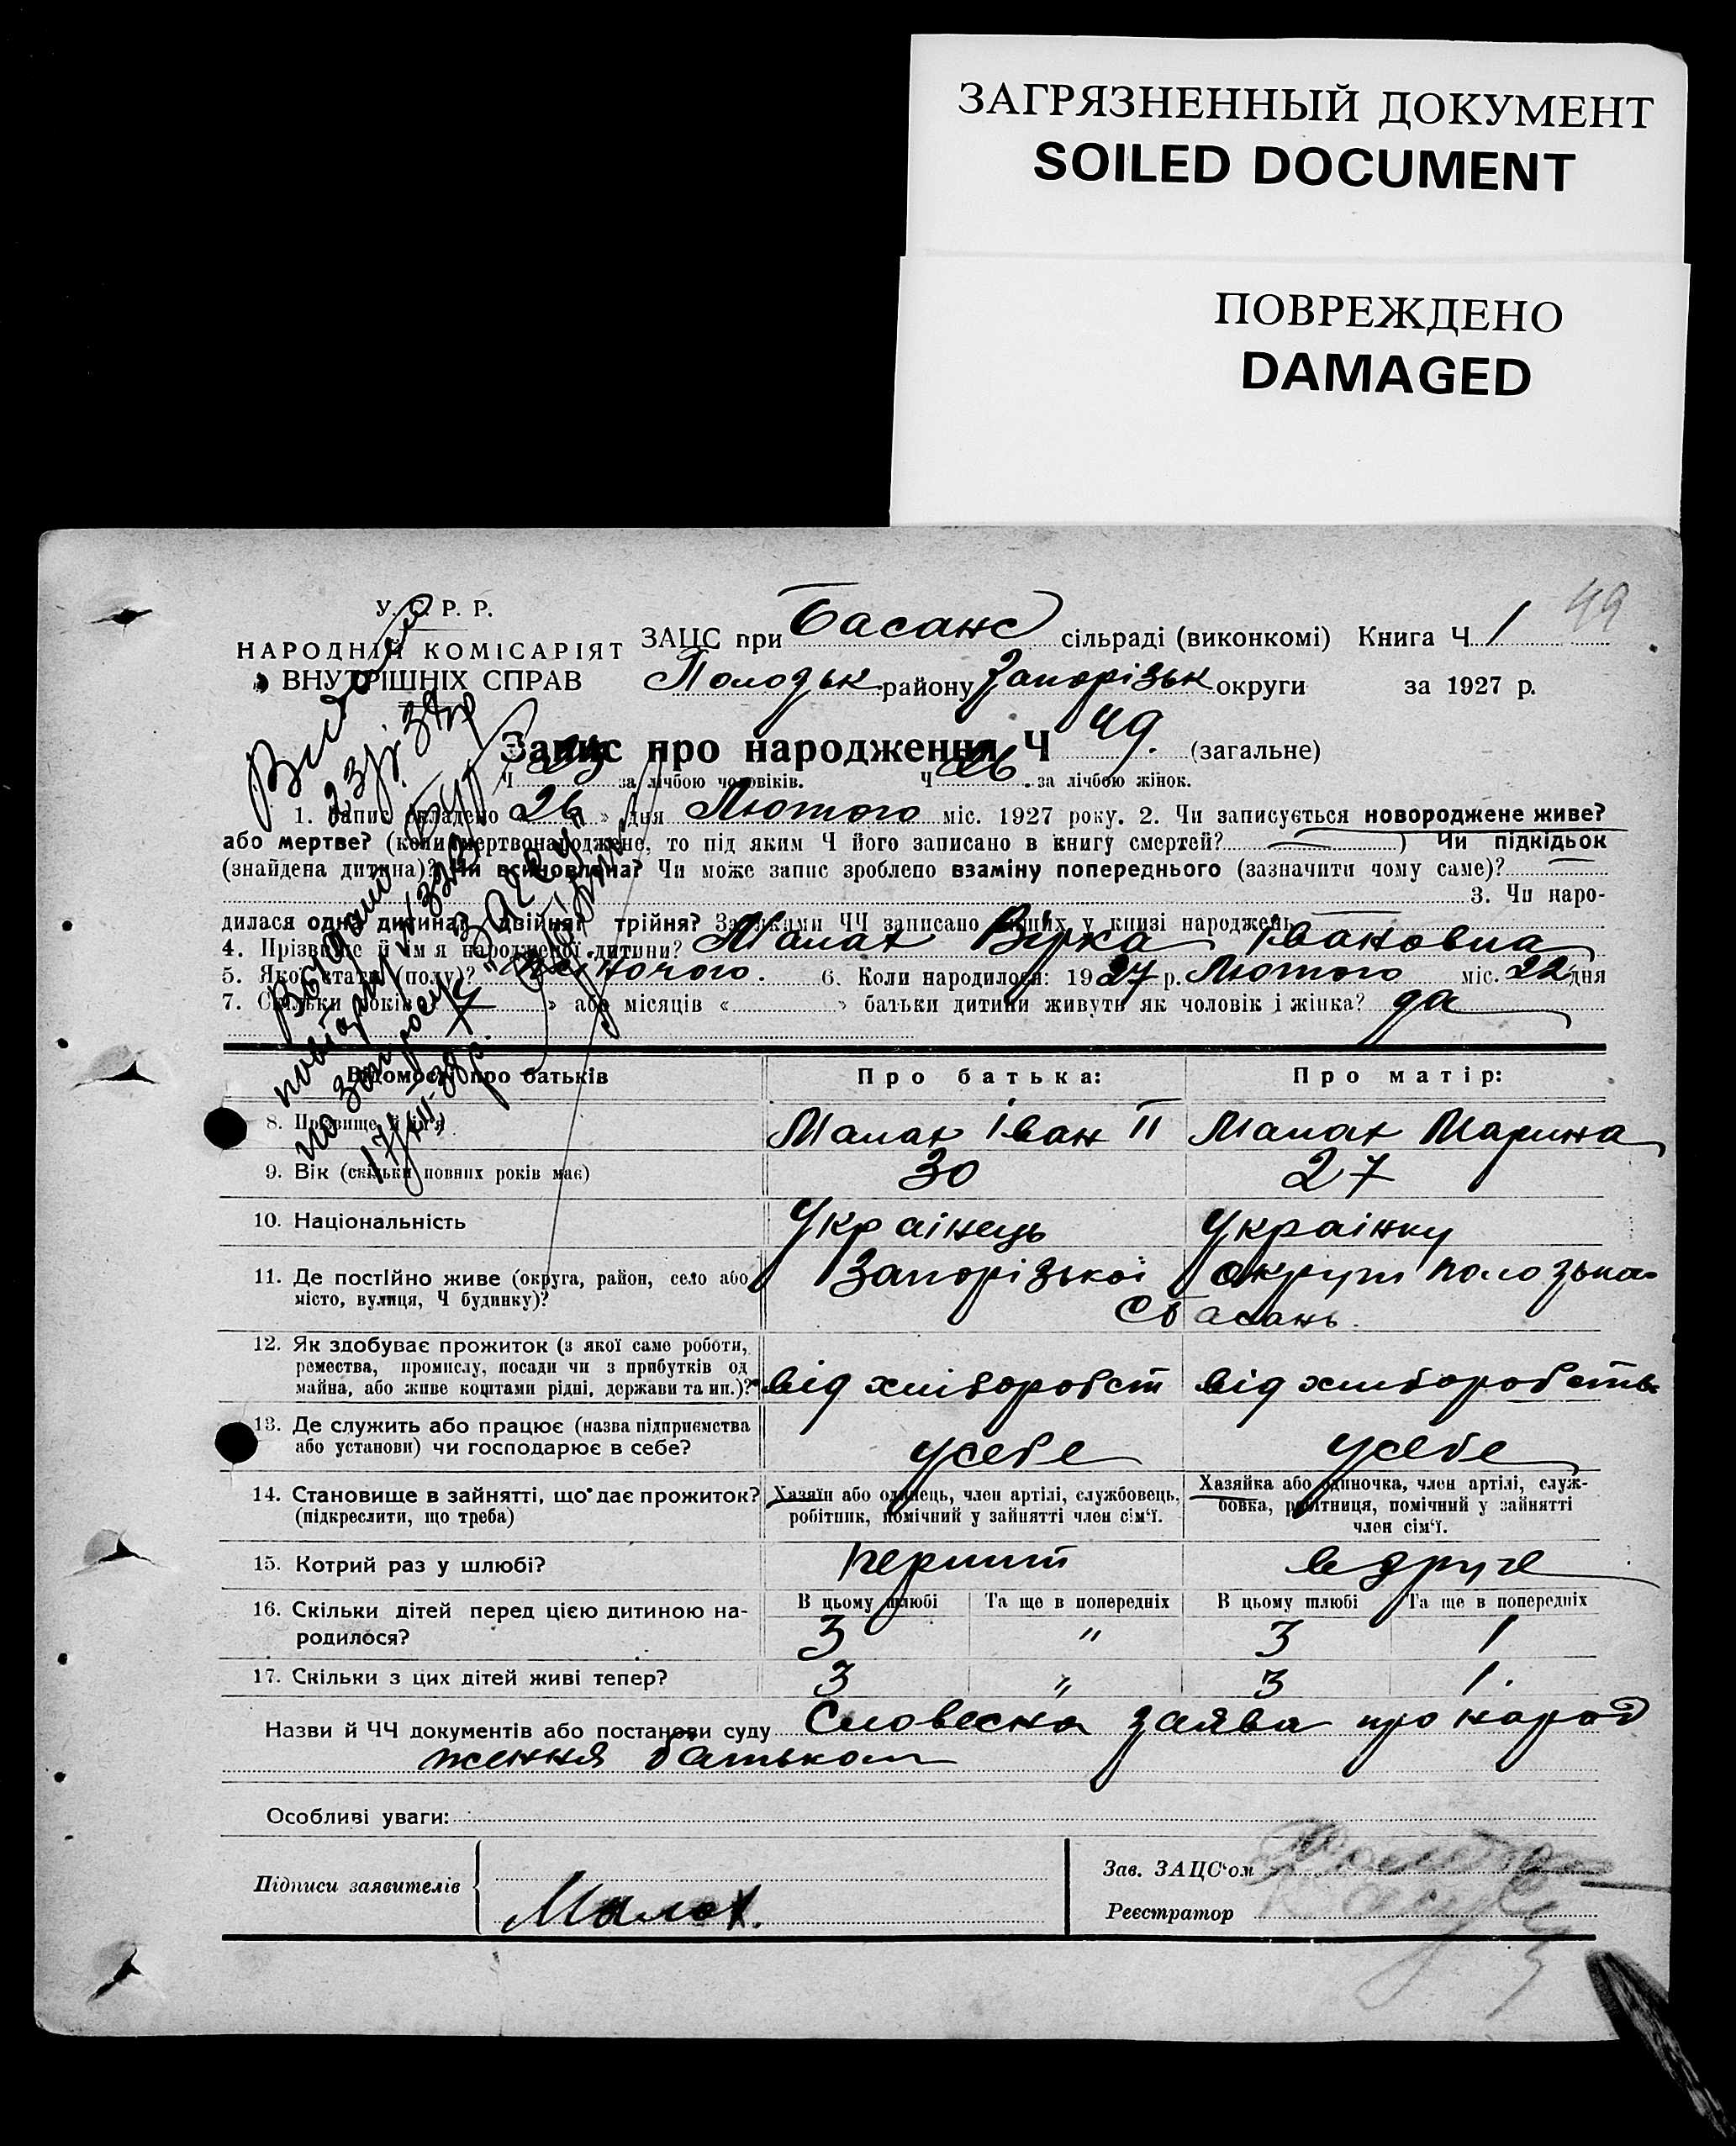 ЗАГРЯЗНЕННЫЙ ДОКУМЕНТ
SOILED DOCUMENT
ПОВРЕЖДЕНО
DAMAGED
49
У. С. Р. Р.
НАРОДНІЙ КОМІСАРІЯТ
ВНУТРІШНІХ СПРАВ
ЗАЦС при Басанс сільраді (виконкомі) Книга Ч 1
Полозьк району Запорізьк округи за 1927 р.
Запис про народження Ч 49. (загальне)
Ч 23 за лічбою чоловіків. Ч 26 за лічбою жінок.
1. Запис складено « 26 » дня Лютого міс. 1927 року. 2. Чи записується новороджене живе?
або мертве? (коли мертвонароджене, то під яким Ч його записано в книгу смертей? ) Чи підкідьок
(знайдена дитина)? Чи всиновлена? Чи може запис зроблено взаміну попереднього (зазначити чому саме)?
3. Чи наро-
дилася одна дитина? двійня? трійня? За якими ЧЧ записано інших у книзі народжень
4. Прізвище й ім'я народженої дитини? Малах Вірка Івановна
5. Якої статі (полу)? жіночого. 6. Коли народилося: 1927 р. Лютого міс. 22 дня
7. Скільки років « 7 » або місяців « » батьки дитини живуть як чоловік і жінка? да
Видано
повтор
по запросу
17/XII-38р.
Відомості про батьків Про батька: Про матір:
8. Прізвище й ім'я Малах Іван II Малах Марина
9. Вік (скільки повних років має) 30 27
10. Національність Українець Українку
11. Де постійно живе (округа, район, село або Запорізької округи Полозька
місто, вулиця, Ч будинку)? С Басань.
12. Як здобуває прожиток (з якої саме роботи,
ремества, промислу, посади чи з прибутків од
майна, або живе коштами рідні, держави та ин.)? від хліборобст від хлиборобства
13. Де служить або працює (назва підприємства
або установи) чи господарює в себе? усебе усебе
14. Становище в зайнятті, що дає прожиток? Хазяїн або одинець, член артілі, службовець, Хазяйка або одиночка, член артілі, служ-
(підкреслити, що треба) робітник, помічний у зайнятті член сім'ї. бовка, робітниця, помічний у зайнятті
член сім'ї.
15. Котрий раз у шлюбі? перший вдруге
16. Скільки дітей перед цією дитиною на- В цьому шлюбі Та ще в попередніх В цьому шлюбі Та ще в попередніх
родилося? 3 " 3 1
17. Скільки з цих дітей живі тепер? 3 " 3 1.
Назви й ЧЧ документів або постанови суду Словесна заява про народ
ження батьком
Особливі уваги:
Підписи заявителів Малах.
Зав. ЗАЦС'ом
Реєстратор